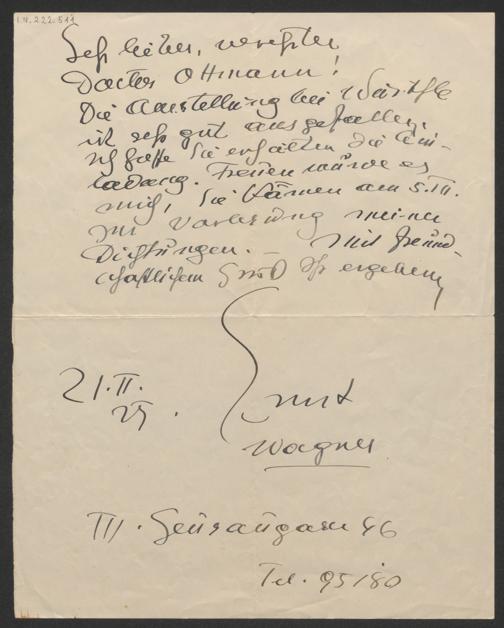 I.N. 222.511
Sehr lieber, verehrter
Doctor Ottmann!
Die Ausstellung bei Würthle
ist sehr gut ausgefallen.
Ich hoffe Sie erhalten die Ein-
ladung. Freuen würde es
mich, Sie kämen am 5.III.
zur Vorlesung meiner
Dichtungen. – Mit freund-
schaftlichem Gruß Ihr ergebener
21.II.
Ernst
Wagner
III. 46
Tel. 95180